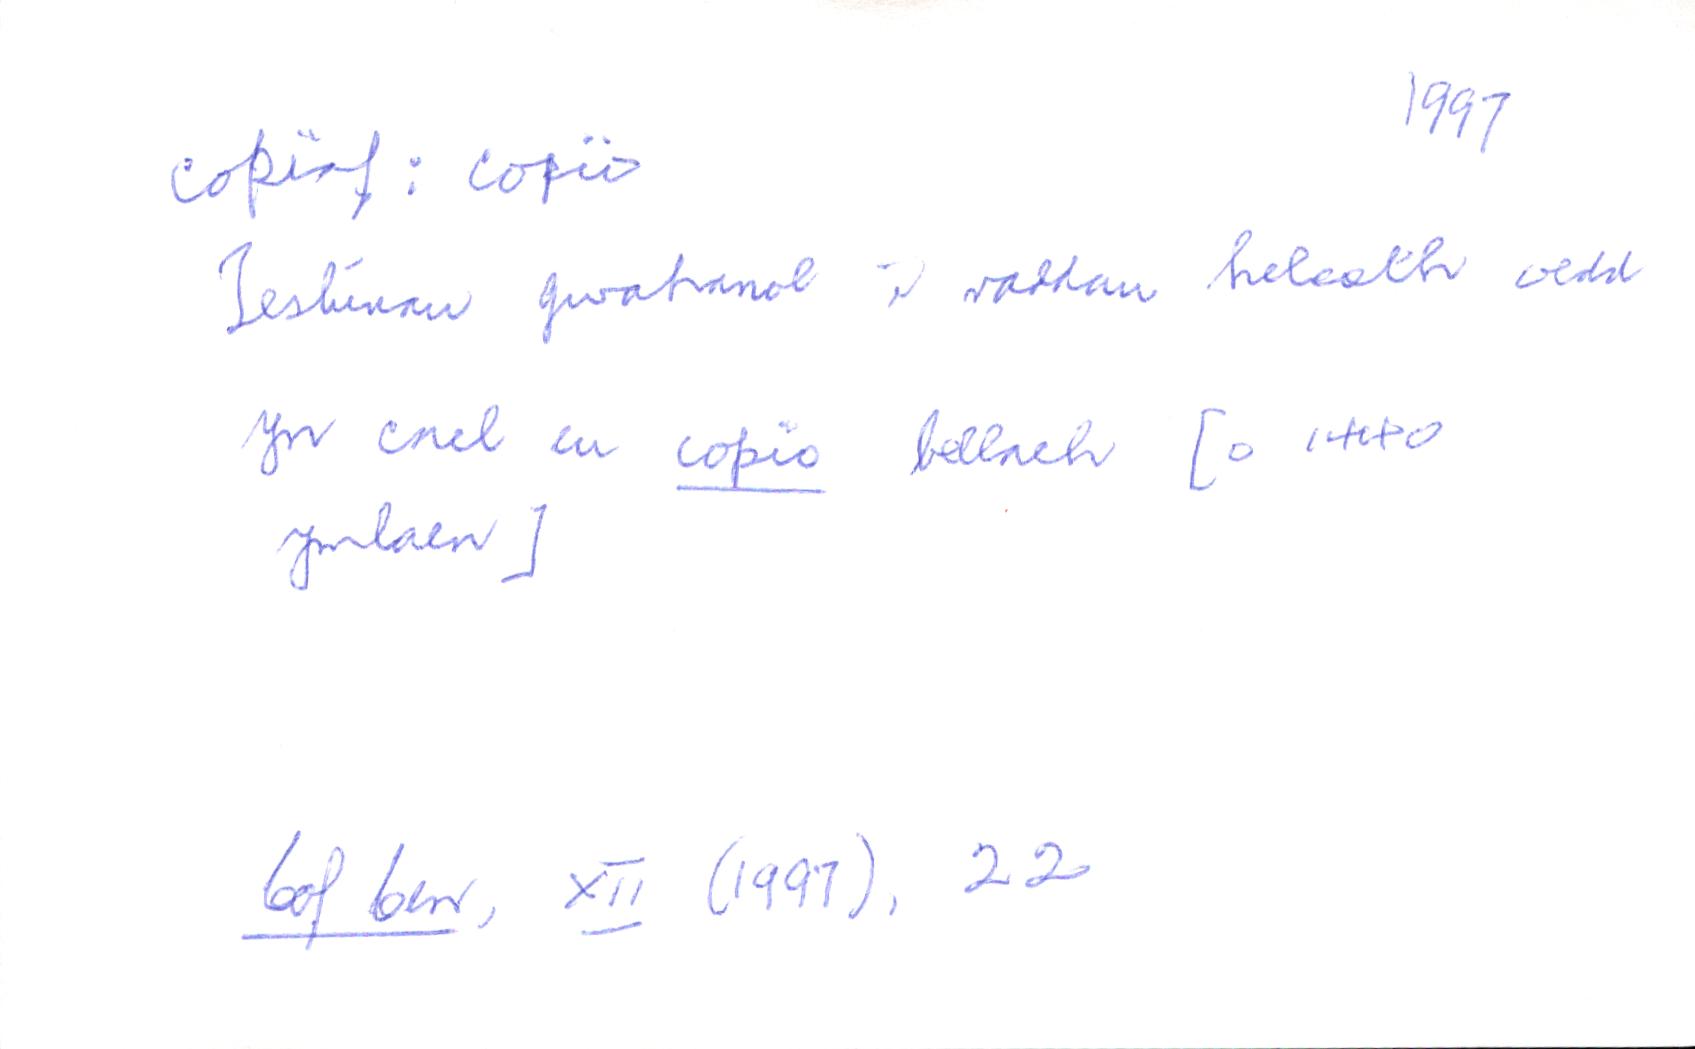 1997
copïaf: copïo
Testunau gwahanol i raddau helaeth oedd
yn cael eu copïo bellach [o 1440
ymlaen]
Cof Cen, XII (1997), 22